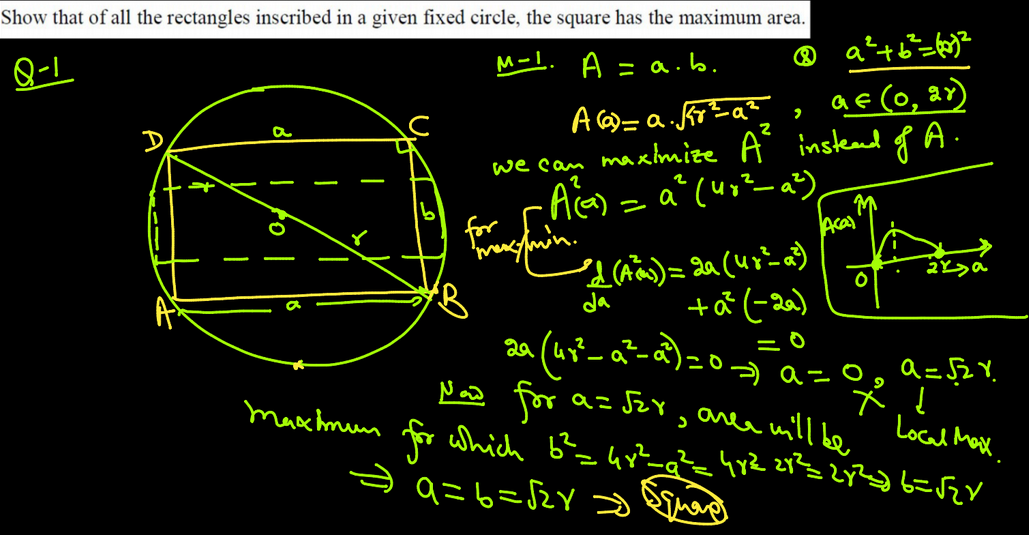 Show that of all the rectangles inscribed in a given fixed circle, the square has the maximum area.
Q-1
D
a
C
b
O
r
A
a
B
M-1. A = a.b. & a²+b²=(2r)²
A(a) = a.√4r²-a² , a ∈ (0, 2r)
we can maximize A² instead of A.
A²(a) = a² (4r²-a²)
for max/min.
d/da (A²(a)) = 2a(4r²-a²)
+a² (-2a)
= 0
A(a)
O
2r
a
2a (4r²-a²-a²)=0 ⇒ a = 0, a = √2 r.
X
↓
Local Max.
Now for a = √2 r, area will be
maximum for which b² = 4r²-a² = 4r²-2r² = 2r² ⇒ b = √2 r
⇒ a = b = √2 r ⇒ Square